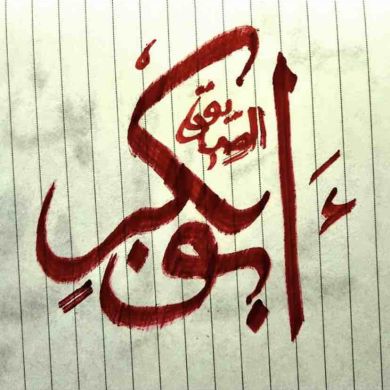 أبو بكرٍ
الصديق